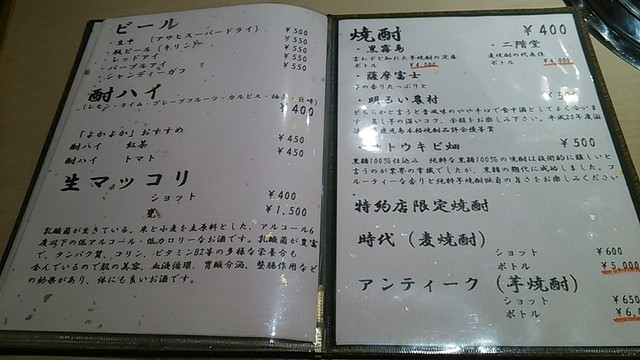 ビール
・生中 (アサヒスーパードライ) ¥500
・瓶ビール(キリン) ¥550
・レッドアイ ¥550
・パープルアイ ¥550
・シャンディーガフ
酎ハイ ¥400
(レモン・ライム・グレープフルーツ・カルピス・
「よかよか」おすすめ
酎ハイ 紅茶 ¥450
酎ハイ トマト ¥450
生マッコリ
ショット ¥400
甕 ¥1,500
乳酸菌が生きている。米と小麦を主原料とした、アルコール6
度以下の低アルコール・低カロリーなお酒です。乳酸菌が豊富
で、タンパク質、コリン、ビタミンB2等の多様な栄養分も
含んでいるので肌の美容、血液循環、胃酸分泌、整腸作用など
の効果があり、体にも良いお酒です。
焼酎 ¥400
・黒霧島
言わずと知れた芋焼酎の定番
ボトル ¥4,000
・二階堂
麦焼酎の代表作
ボトル
・薩摩富士
芋の香りたっぷりと
・明るい農村
どちらかと言うと昔風味のやや辛口で食中酒としてよく合いま
す。蒸し芋の温いコク、余韻をお楽しみ下さい。平成20年度酒
鹿児島本格焼酎品評会優等賞
トウキビ畑 ¥500
黒糖100%仕込み 純粋な黒糖100%の焼酎は技術的に難しいと
言うのが業界の常識でしたが、黒糖の麹化に成功しました。フ
ルーティーな香りと純粋芋焼酎独自の旨さをお楽しみください
特約店限定焼酎
時代(麦焼酎)
ショット ¥600
ボトル ¥5,000
アンティーク(芋焼酎)
ショット ¥650
ボトル